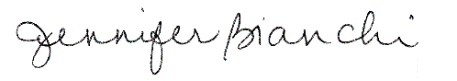 Jennifer Bianchi